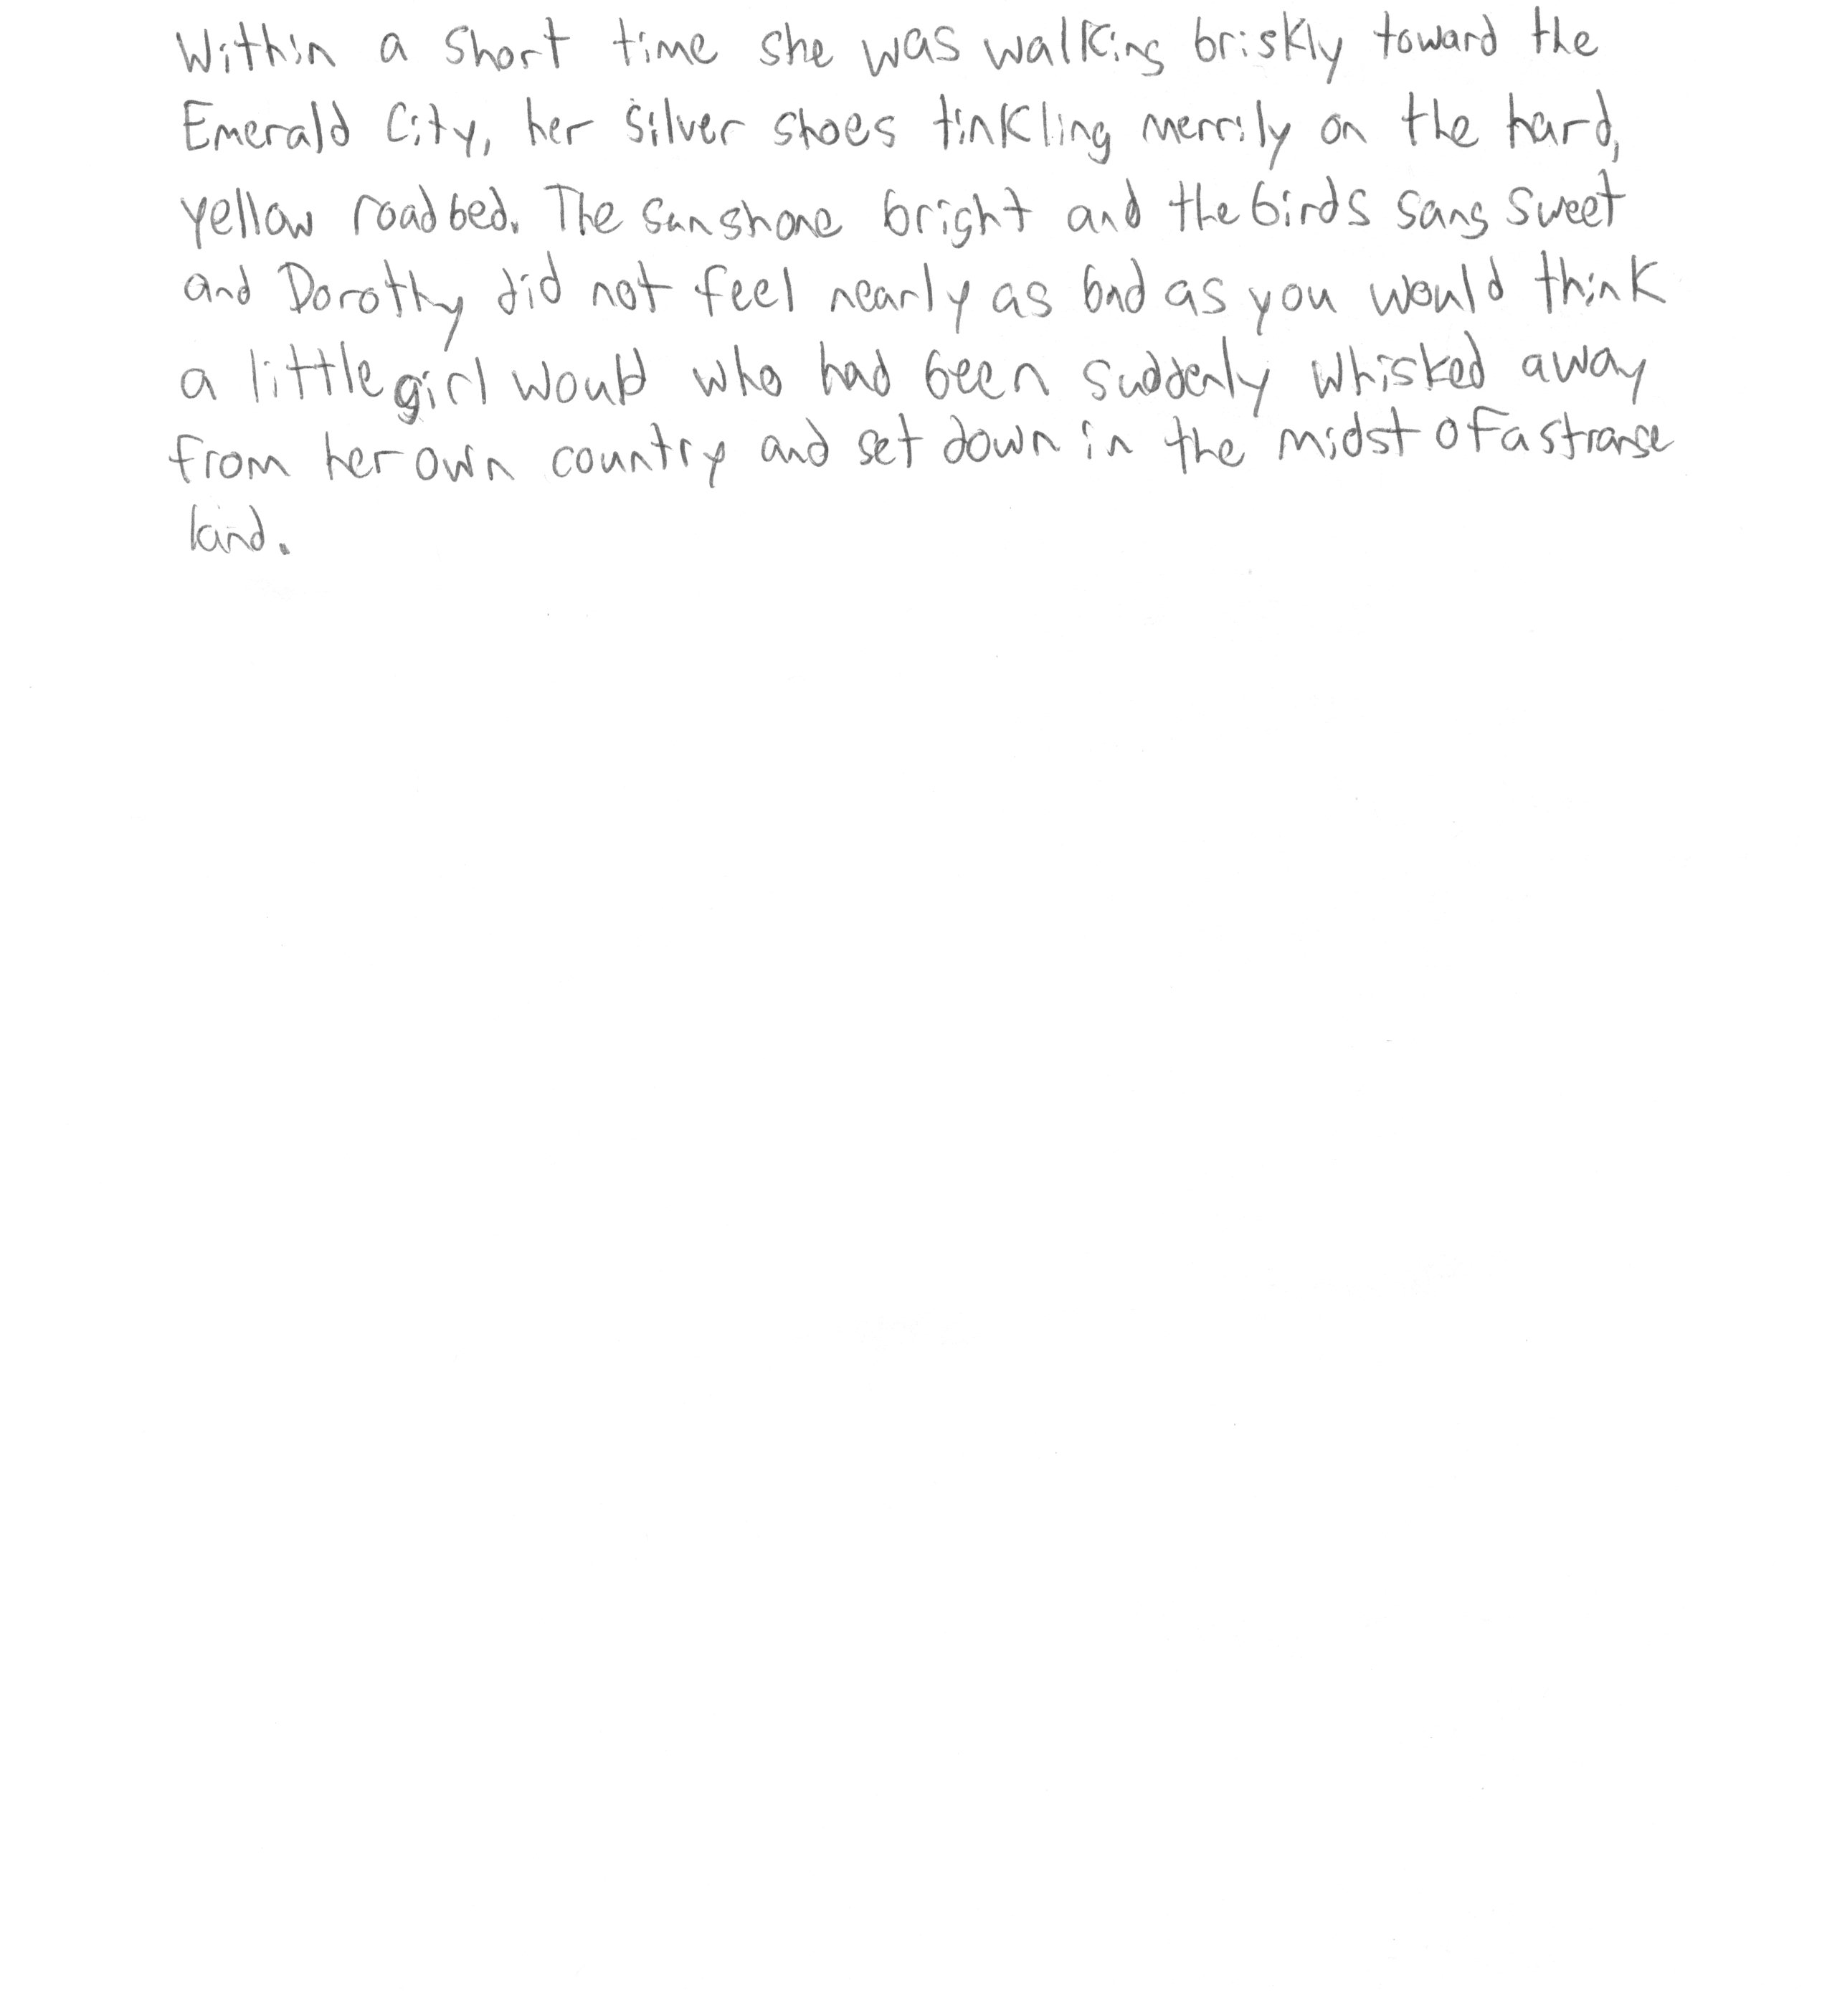 Within a short time she was walking briskly toward the
Emerald City, her silver shoes tinkling merrily on the hard,
yellow roadbed. The sun shone bright and the birds sang sweet
and Dorothy did not feel nearly as bad as you would think
a little girl would who had been suddenly whisked away
from her own country and set down in the midst of a strange
land.